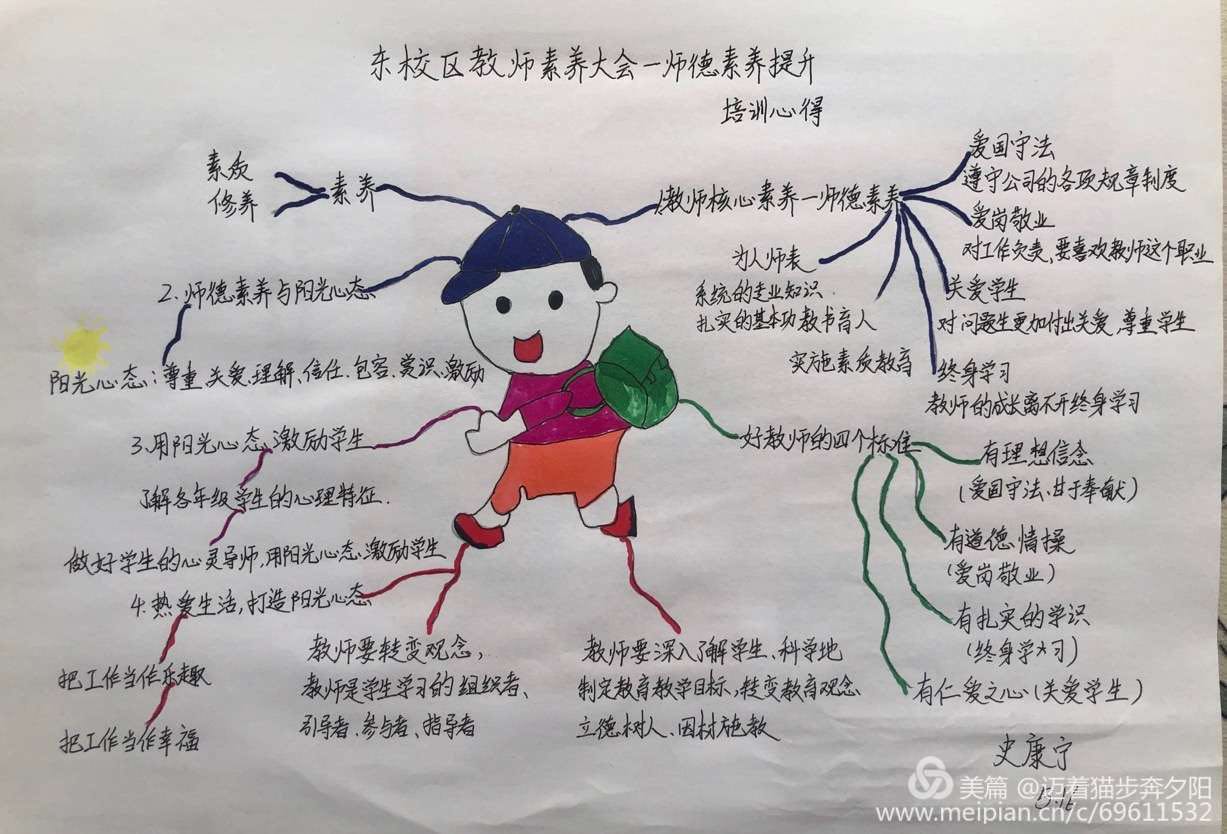 东校区教师素养大会一师德素养提升
培训心得
素质
修养
素养
1.教师核心素养一师德素养
爱国守法
遵守公司的各项规章制度
爱岗敬业
对工作负责,要喜欢教师这个职业
关爱学生
对问题生更加付出关爱,尊重学生
终身学习
教师的成长离不开终身学习
为人师表
系统的专业知识.
扎实的基本功 教书育人
实施素质教育
2.师德素养与阳光心态
阳光心态:尊重、关爱、理解、信任、包容、赏识、激励
3.用阳光心态激励学生
了解各年级学生的心理特征.
做好学生的心灵导师,用阳光心态激励学生
4.热爱生活,打造阳光心态
把工作当作乐趣
把工作当作幸福
教师要转变观念,
教师是学生学习的组织者、
引导者、参与者、指导者
教师要深入了解学生、科学地
制定教育教学目标,转变教育观念
立德树人、因材施教
好教师的四个标准
有理想信念
(爱国守法、甘于奉献)
有道德情操
(爱岗敬业)
有扎实的学识
(终身学习)
有仁爱之心(关爱学生)
史康宁
5.16
美篇 @迈着猫步奔夕阳
www.meipian.cn/c/69611532